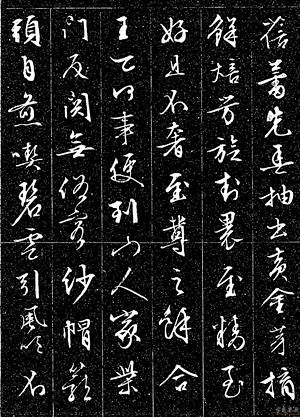 蓓蕾先春抽出黃金芽摘
鮮焙芳旋封裹至精至
好且不奢至尊之餘合
王公何事便到山人家柴
門反関無俗客紗帽籠
頭自煎喫碧雲引風吹不